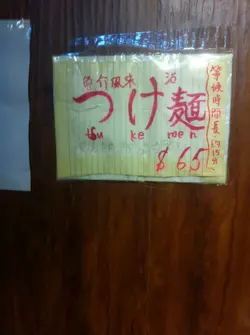 魚介風味 沾
つけ麵
tsu ke men
$65
等候時間長,約15分